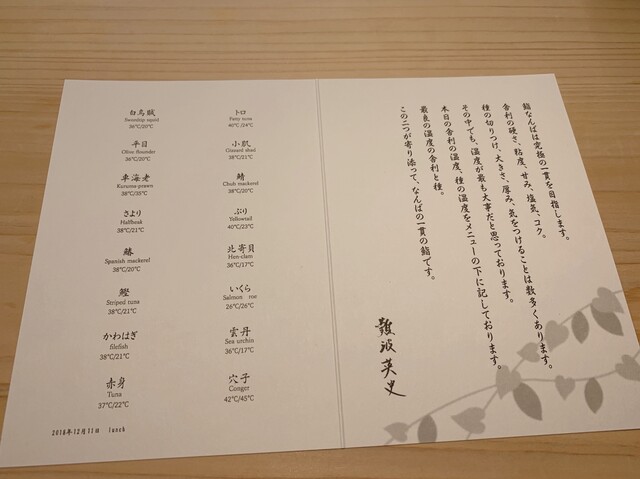 白烏賊
Swordtip squid
36℃/20℃
平目
Olive flounder
36℃/20℃
車海老
Kuruma-prawn
38℃/35℃
さより
Halfbeak
38℃/21℃
鰆
Spanish mackerel
38℃/20℃
鰹
Striped tuna
38℃/21℃
かわはぎ
filefish
38℃/21℃
赤身
Tuna
37℃/22℃
トロ
Fatty tuna
40℃/24℃
小肌
Gizzard shad
38℃/21℃
鯖
Chub mackerel
38℃/20℃
ぶり
Yellowtail
40℃/23℃
北寄貝
Hen-clam
36℃/17℃
いくら
Salmon roe
26℃/26℃
雲丹
Sea urchin
36℃/17℃
穴子
Conger
42℃/45℃
2018年12月11日 lunch
鮨なんばは究極の一貫を目指します。
舎利の硬さ、粘度、甘み、塩気、コク。
種の切りつけ、大きさ、厚み、気をつけることは数多くあります。
その中でも、温度が最も大事だと思っております。
本日の舎利の温度、種の温度をメニューの下に記しております。
最良の温度の舎利と種。
この二つが寄り添って、なんばの一貫の鮨です。
難波英史